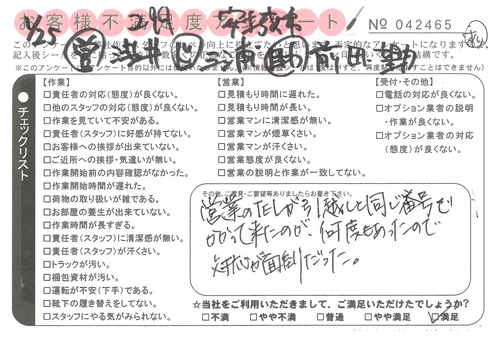 お客様不満足度アンケート
№ 042465
(※このアンケート
チェックリスト
【作業】
□責任者の対応(態度)が良くない。
□他のスタッフの対応(態度)が良くない。
□作業を見ていて不安がある。
□責任者(スタッフ)に好感が持てない。
□お客様への挨拶が出来ていない。
□ご近所への挨拶・気遣いが無い。
□作業開始前の内容確認がなかった。
□作業開始時間が遅れた。
□荷物の取り扱いが雑である。
□お部屋の養生が出来ていない。
□作業時間が長すぎる。
□責任者(スタッフ)に清潔感が無い。
□責任者(スタッフ)が汗くさい。
□トラックが汚い。
□梱包資材が汚い。
□運転が不安(下手)である。
□靴下の履き替えをしてない。
□スタッフにやる気がみられない。
【営業】
□見積もり時間に遅れた。
□見積もり時間が長い。
□営業マンに清潔感が無い。
□営業マンが煙草くさい。
□営業マンが汗くさい。
□営業態度が良くない。
□営業の説明と作業が一致してない。
【受付・その他】
□電話の対応が良くない。
□オプション業者の説明
・作業が良くない。
□オプション業者の対応
(態度)が良くない。
その他、ご意見・ご要望等ありましたらお書き下さい。
営業のTELが引越しと同じ番号で
かかって来たのが、何度もあったので
対応が面倒だった。
☆当社をご利用いただきまして、ご満足いただけたでしょうか?
□不満 □やや不満 □普通 □やや満足 □満足